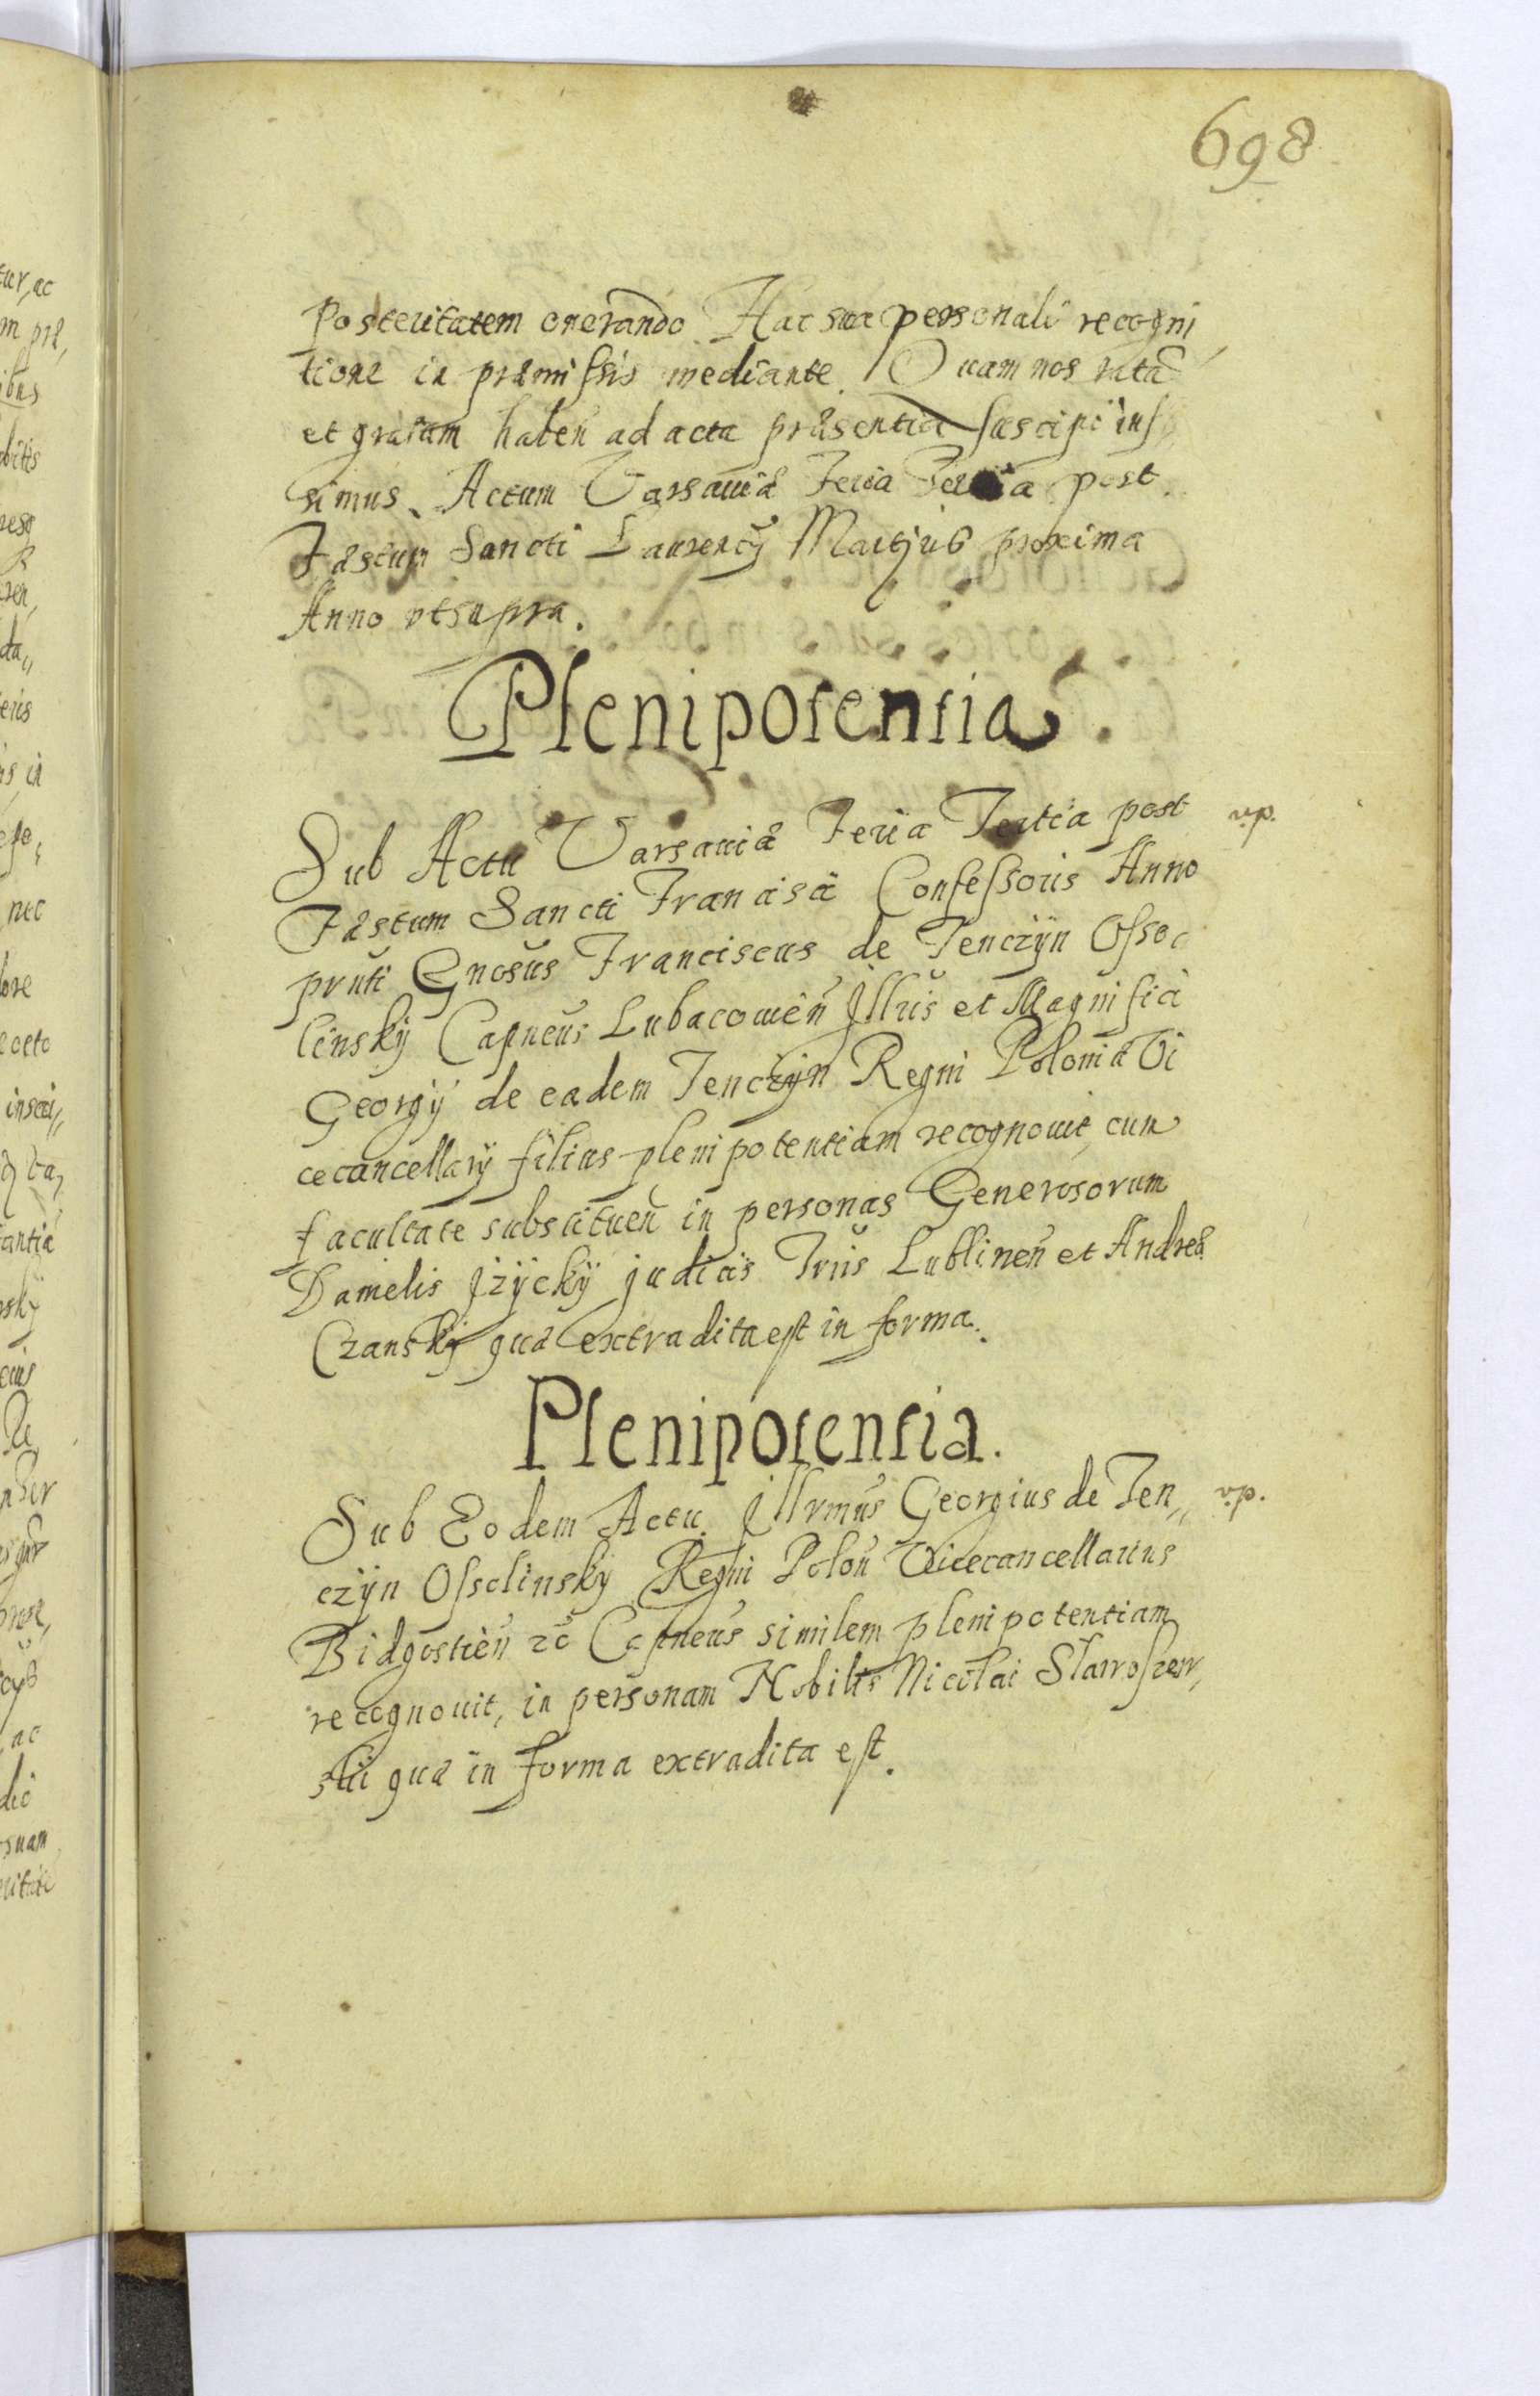 698
Posteritatem onerando. Hac sua personali recogni,
tione in præmissis mediante. Quam nos ratā
et gratam haben̄ ad acta præsentia suscipi ius
simus. Actum Varsauiæ Feria Tertia post
Fæstum Sancti Laurencÿ Martÿris proxima
Anno vt supra.
Plenipotentia.
Sub Actu Varsauiæ Feria Tertia post
Fæstum Sancti Francisci Confessoris Anno
prnti Gnosus Franciscus de Tenczÿn Osso
linskÿ Capneus Lubacouien̄ Illris et Magnifici
Georgÿ de eadem Tenczÿn Regni Poloniæ Vi
cecancellarÿ filius plenipotentiam recognouit, cum
facultate substituen̄ in personas Generosorum
Danielis Jzÿckÿ judicis Trris Lublinen̄ et Andreæ
Czanskÿ quæ extradita est in forma.
Plenipotentia.
Sub Eodem Actu. Illrmus Georgius de Ten„
czÿn Ossolinskÿ Regni Polon̄ Vicecancellarius
Bidgostien̄ zc Capneus similem plenipotentiam
recognouit, in personam Nobilis Nicolai Starroszew,
skii quæ in forma extradita est.